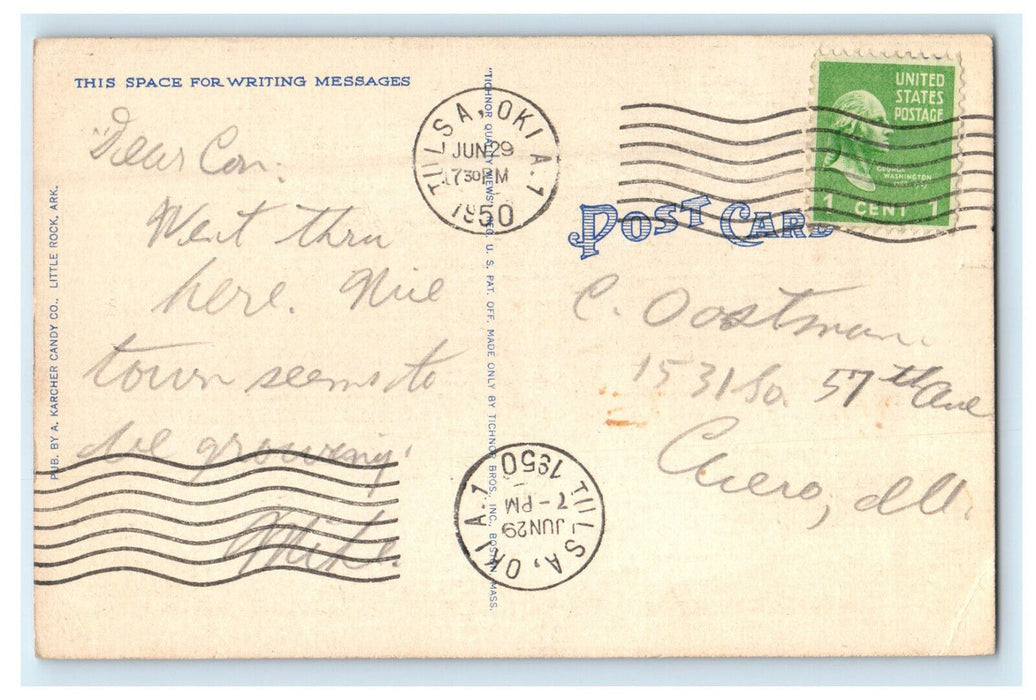 THIS SPACE FOR WRITING MESSAGES
Dear Con:
Went thru
here. Nice
town seems to
be growing.
Mike.
PUB. BY A. KARCHER CANDY CO., LITTLE ROCK, ARK.
"TICHNOR QUALITY VIEWS," REG. U. S. PAT. OFF. MADE ONLY BY TICHNOR BROS., INC., BOSTON, MASS.
TULSA, OKLA. 1
JUN 29
730 PM
1950
UNITED
STATES
POSTAGE
GEORGE
WASHINGTON
1 CENT 1
POST CARD
C. Oostman.
1531 So. 57th Ave
Cicero, Ill.
TULSA, OKLA. 1
JUN 29
7 - PM
1950